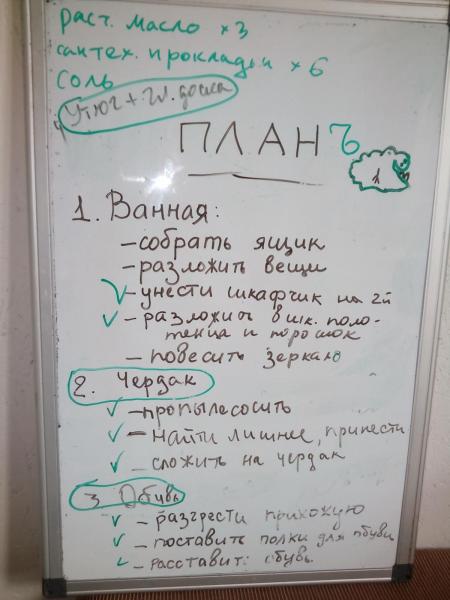 раст. масло ×3
сантех. прокладки ×6
соль
Утюг + гл. доска
ПЛАНЪ
1
1. Ванная:
– собрать ящик
– разложить вещи
– унести шкафчик на 2й
– разложить в шк. поло-
тенца и порошок
– повесить зеркало
2. Чердак
– пропылесосить
– найти лишнее, принести
– сложить на чердак
3. Обувь
– разгрести прихожую
– поставить полки для обуви
– расставит: обувь.